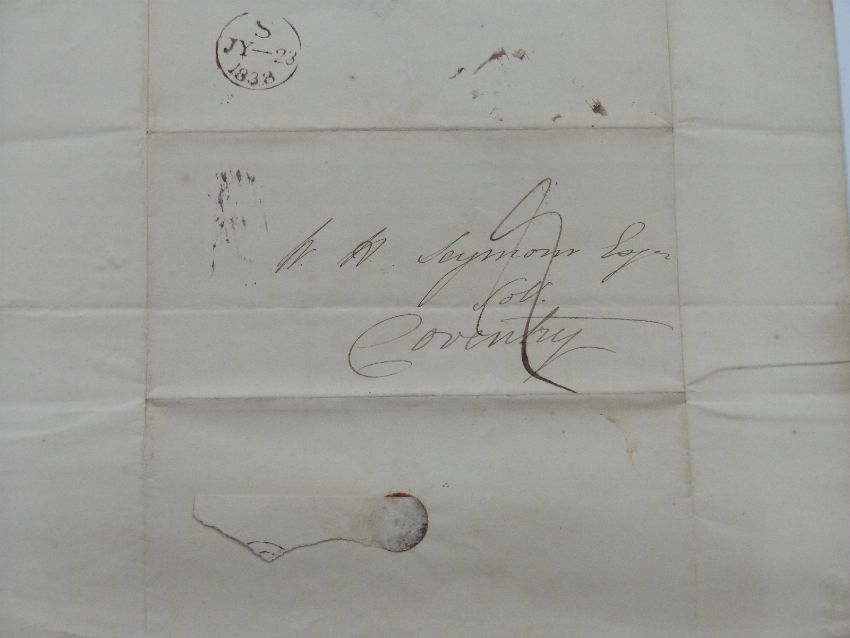 S
JY—23
1838
W. W. Seymour Esqr
Solr.
Coventry